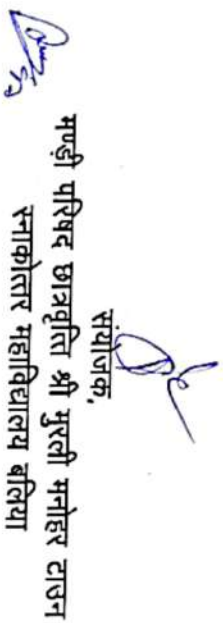 संयोजक,
मण्डी परिषद छात्रवृत्ति श्री मुरली मनोहर टाउन
स्नाकोत्तर महाविद्यालय बलिया